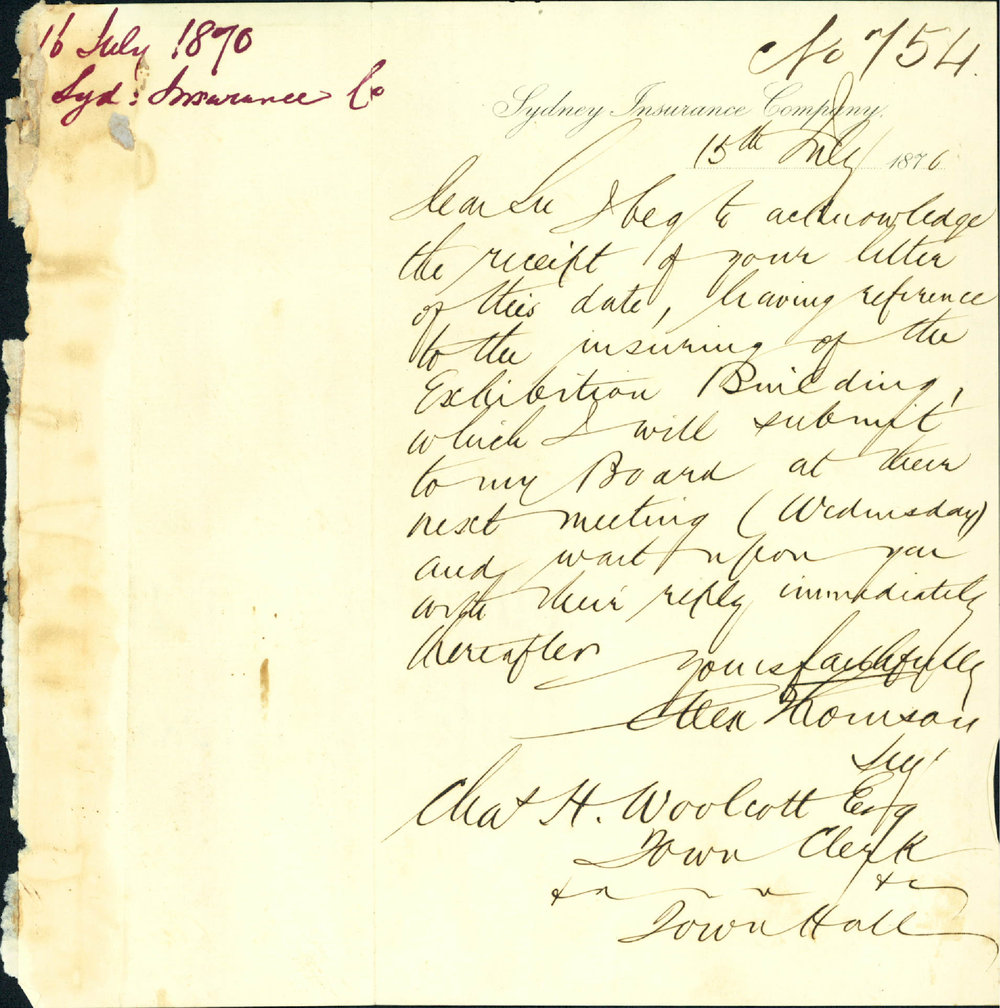 16 July 1870
Syd: Insurance Co
No 754.
Sydney Insurance Company.
15th July 1870
Dear Sir I beg to acknowledge
the receipt of your letter
of this date, having reference
to the insuring of the
Exhibition Building,
which I will submit
to my Board at their
next meeting (Wednesday)
and wait upon you
with their reply immediately
thereafter
Yours faithfully
Alex Thomson
Secy
Chas H. Woolcott Esq
Town Clerk
&c &c
Town Hall